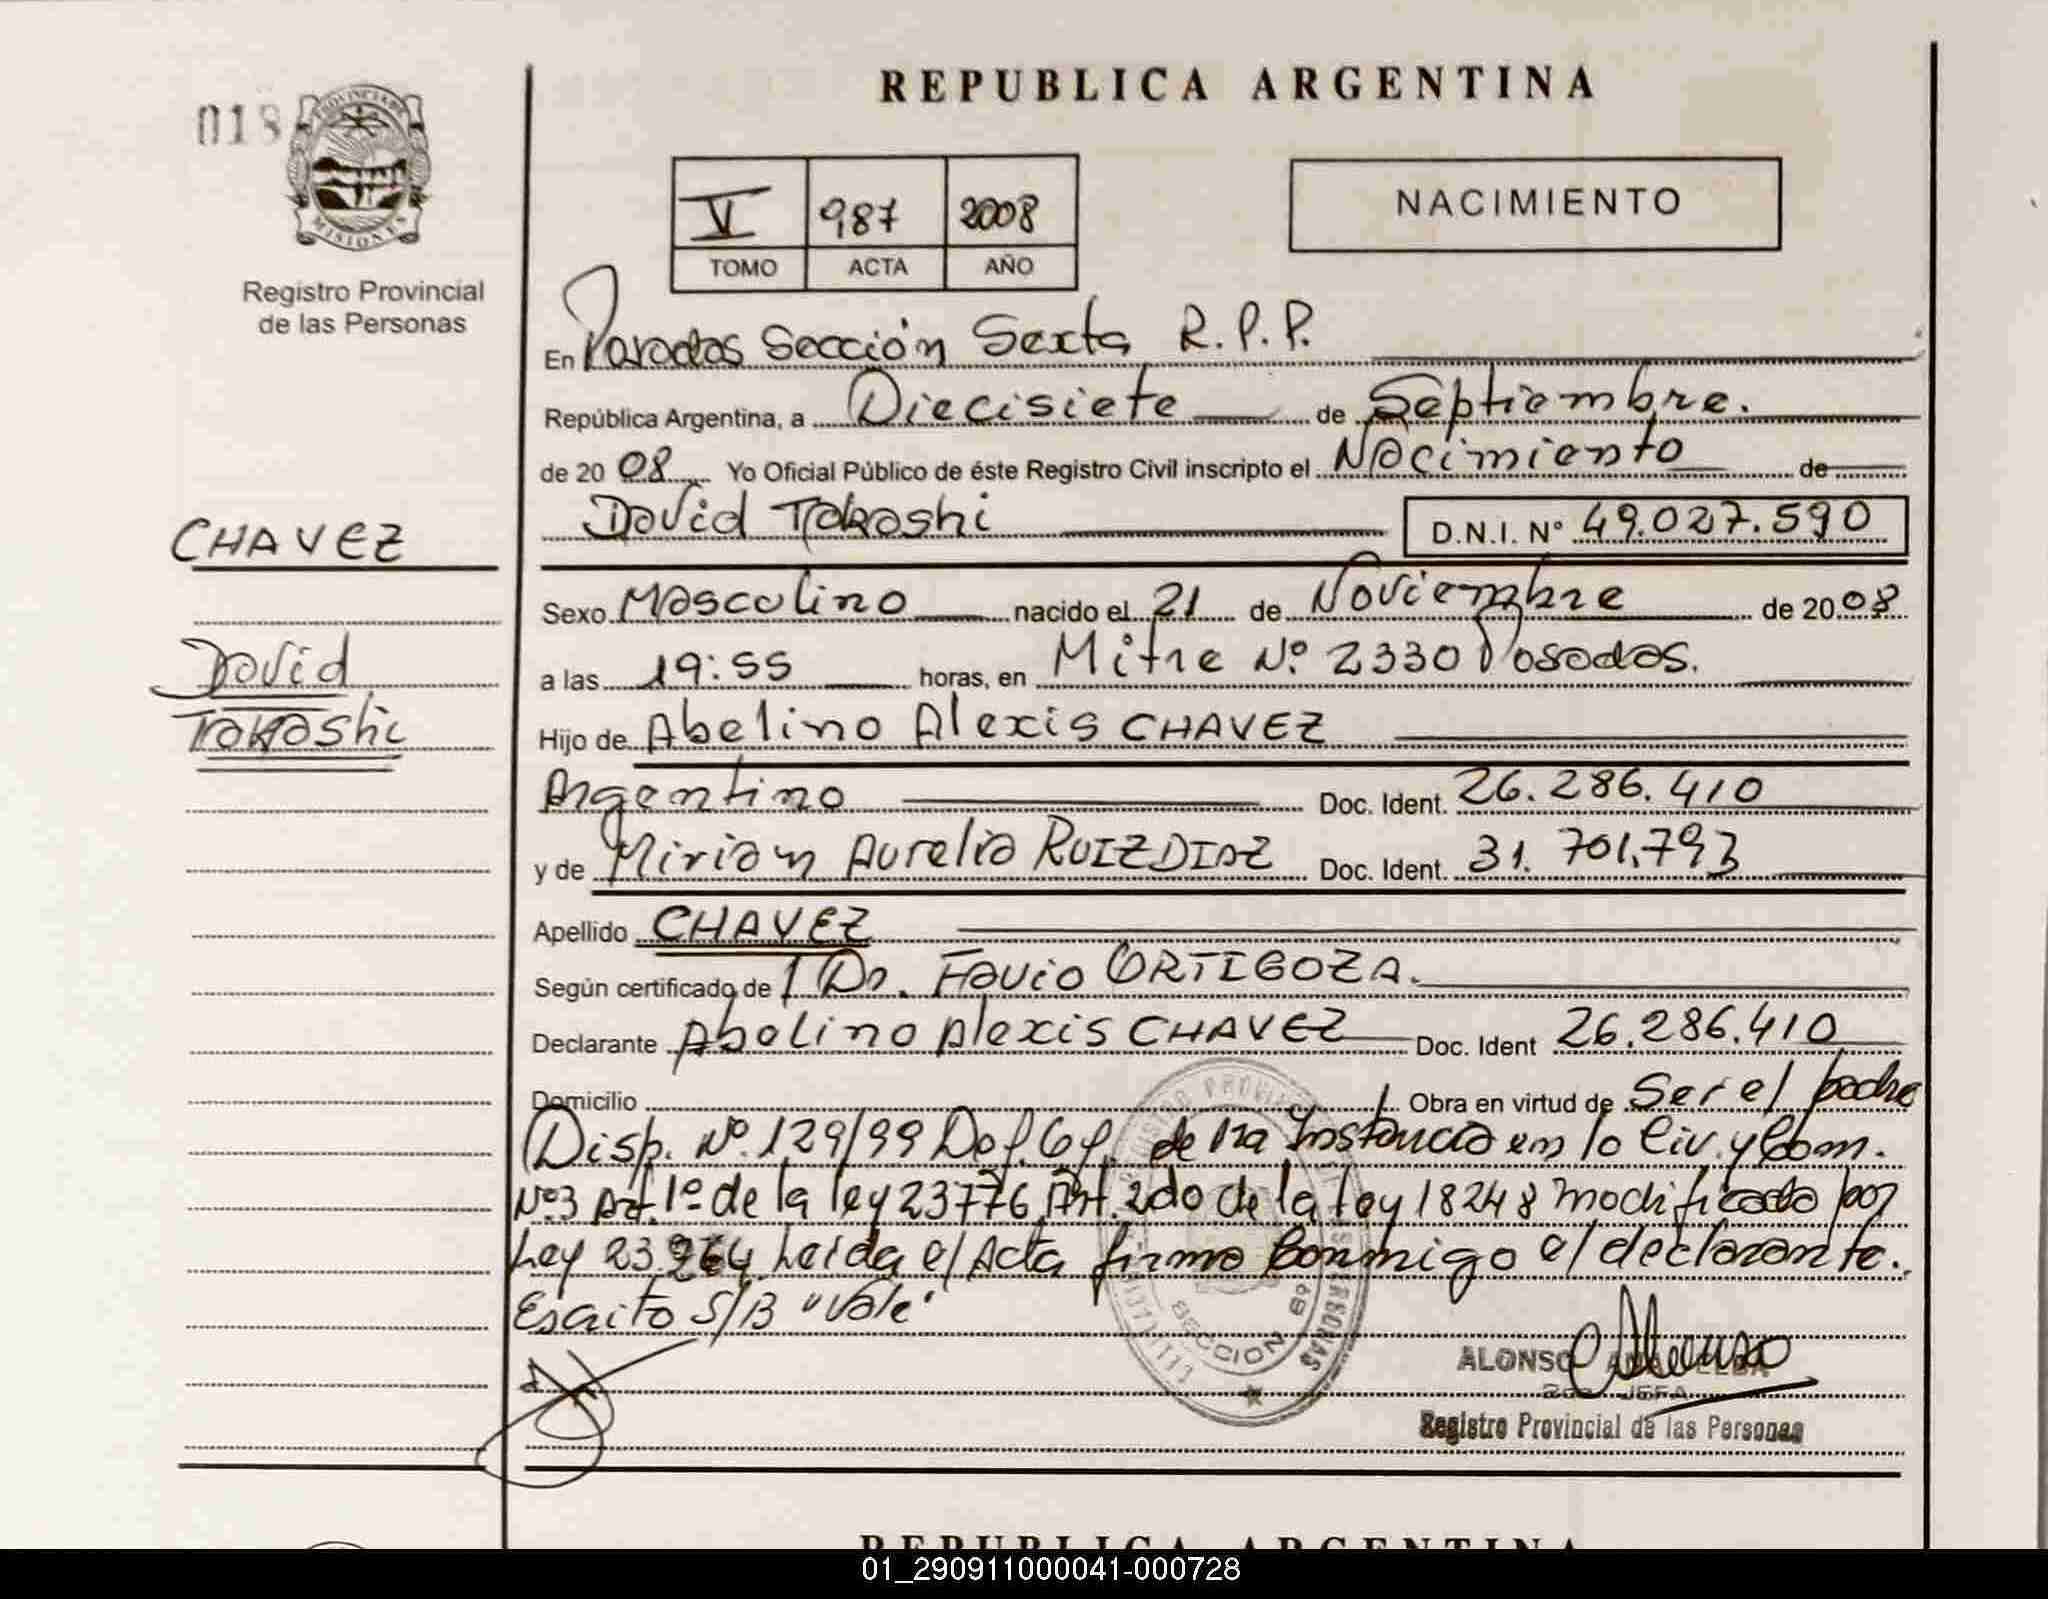 REPUBLICA ARGENTINA
018
PROVINCIA DE
MISIONES
Registro Provincial
de las Personas
V 987 2008
TOMO ACTA AÑO
NACIMIENTO
En Posadas Sección Sexta R.P.P.
República Argentina, a Diecisiete de Septiembre.
de 2008 Yo Oficial Público de éste Registro Civil inscripto el Nacimiento de
David Takashi D.N.I. Nº 49.027.590
CHAVEZ
David
Takashi
Sexo Masculino nacido el 21 de Noviembre de 2008
a las 19:55 horas, en Mitre Nº. 2330 Posadas.
Hijo de Abelino Alexis CHAVEZ
Argentino Doc. Ident. 26.286.410
y de Mirian Aurelia RUIZDIAZ Doc. Ident. 31.701.793
Apellido CHAVEZ
Según certificado de Dr. Favio ORTIGOZA.
Declarante Abelino Alexis CHAVEZ Doc. Ident 26.286.410
Domicilio Obra en virtud de Ser el padre
Disp. Nº. 129/99 Def. de 1ra Instancia en lo Civ. y Com.
Nº3 Art. 1º de la ley 23776, Art. 2do de la Ley 18248 modificado por
Ley 23.264 Leida el Acta firma Conmigo el declarante.
Escrito S/B "Vale"
SECCION 6º
ALONSO
2da. JEFA
Registro Provincial de las Personas
REPUBLICA ARGENTINA
01_290911000041-000728